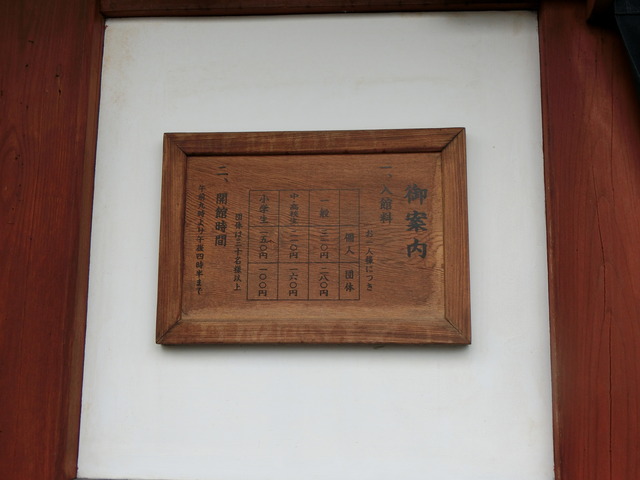 御案内
一、入館料
お一人様につき
個人 団体
一般 三三〇円 二八〇円
中・高校生 二一〇円 一六〇円
小学生 一五〇円 一〇〇円
団体は三十名様以上
二、開館時間
午前九時より午後四時半まで